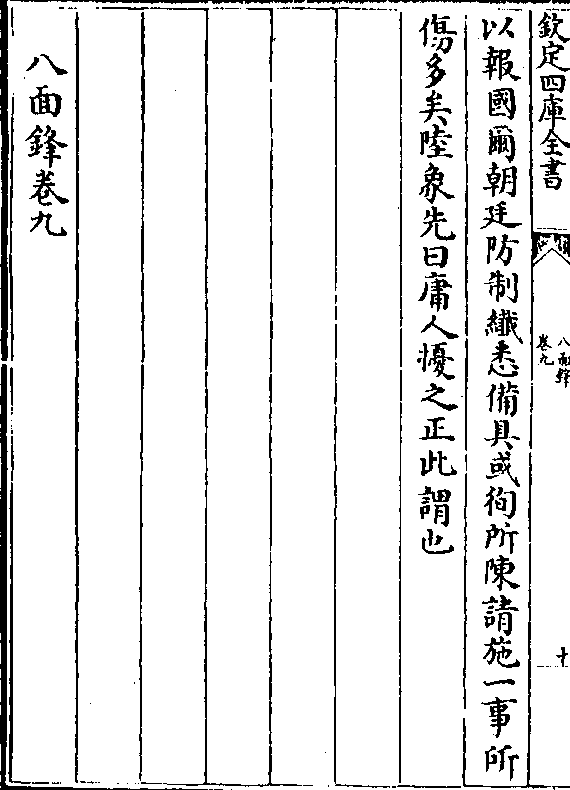 欽定四庫全書
八面鋒
卷九
十
以報國爾朝廷防制纎悉備具或徇所陳請施一事所
傷多矣陸象先曰庸人擾之正此謂也
八面鋒卷九